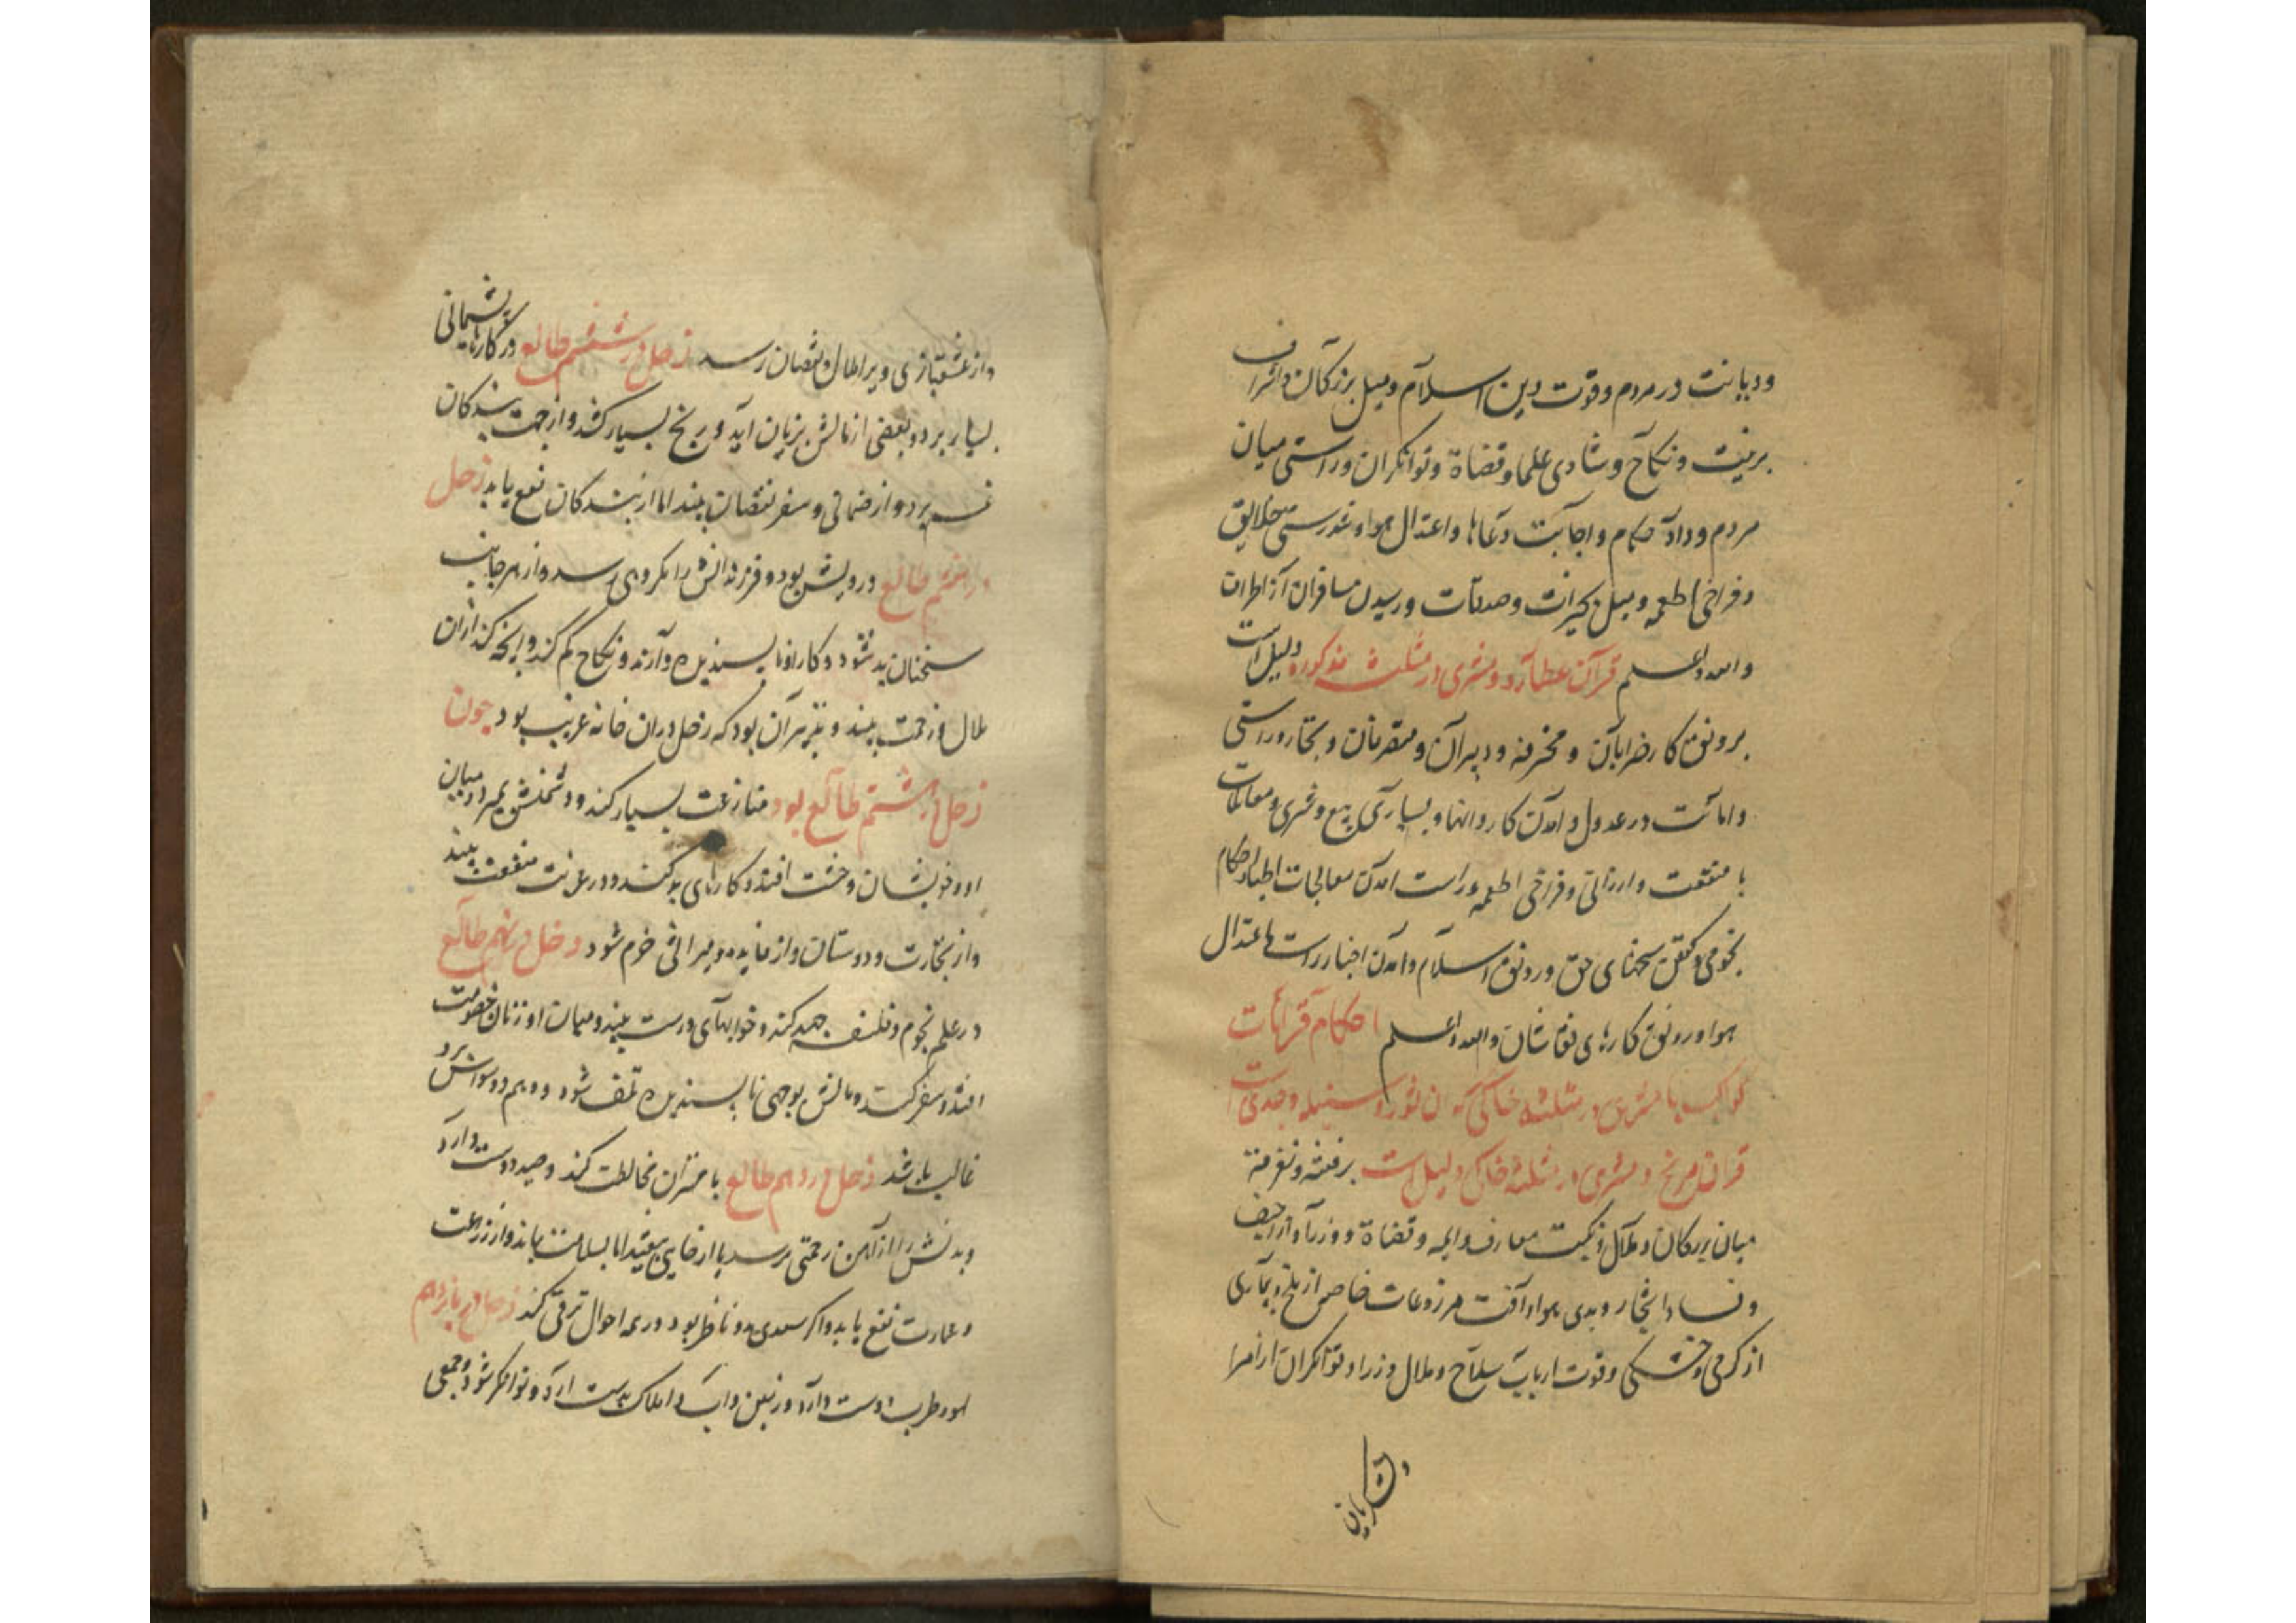 ودیانت در مردم و قوت دین اسلام و میل بزرگان و اشراف
بزینت و نکاح و شادی علما و قضاة و توانکران و راستی میان
مردم و داد حکام و اجابت دعاها و اعتدال هوا و تندرستی خلایق
و فراخی اطعمه و میل بخیرات و صدقات و رسیدن مسافران از اطراف
والله اعلم قران عطارد و مشتری در مثلثه مذکوره دلیل است
بر رونق کار ضرابان و محترفه و دبیران و متصرفان و تجار و راستی
و امانت در عدول و آمدن کاروانها و بسیاری بیع و شری و معاملات
با منفعت و ارزانی و فراخی اطعمه و راست آمدن معالجات اطبا و احکام
نجومی و کفتن سخنهای حق و رونق اسلام و آمدن اخبار راست و اعتدال
هوا و رونق کارهای نقاشان والله اعلم احکام قرانات
کواکب با مشتری در مثلثه خاکی که آن ثور و سنبله و جدیست
قران مریخ و مشتری در مثلثه خاکی دلیل است بر فتنه و تفرقه
میان بزرکان و ملال و نکبت معارف و ایمه و قضاة و وزرا و اراجیف
و فساد اشجار و بدی هوا و آفت مزروعات خاصه از ملخ و بیماری
از کرمی و خشکی و قوت ارباب سلاح و ملال وزرا و توانکران از امرا
و لشکریان
و از عشقبازی ویرا ملال و نقصان رسد زحل در ششم طالع در کارها پشیمانی
بسیار برد و بعضی از مالش بزیان آید و رنج بسیار کشد و از جهت بندکان
غم برد و از ضمانی و سفر نقصان بیند اما از بندکان نفع یابد زحل
در هفتم طالع درویش بود و فرزندانش را مکروهی رسد و از هر جانب
سخنان بد شنود و کار او ناپسندیده دارند و نکاح کم کند و آنچه کند از آن
ملال و زحمت بیند و بتر آن بود که زحل در آن خانه غریب بود چون
زحل در هشتم طالع بود منازعت بسیار کند و دشمنش بمیرد و میان
او و خویشان وحشت افتد و کارهای بد کند و در غربت منفعت بیند
و از تجارت و دوستان و از فایده میراثی خرم شود زحل در نهم طالع
در علم نجوم و فلسفه جهد کند و خوابهای درست بیند و میان او و زنان خصومت
افتد و سفر کند و مالش بوجهی ناپسندیده تلف شود و وهم و وسواس برو
غالب باشد زحل در دهم طالع با مهتران مخالطت کند و صید دوست دارد
و بدنش را از آهن زحمتی رسد یا از جایی بیفتد اما بسلامت باشد و از زراعت
و عمارت نفع یابد و اکر سعدی بدو ناظر بود در همه احوال ترقی کند زحل در یازدهم
لهو و طرب دوست دارد و زمین و آب و املاک بدست آرد و توانکر شود و جمعی